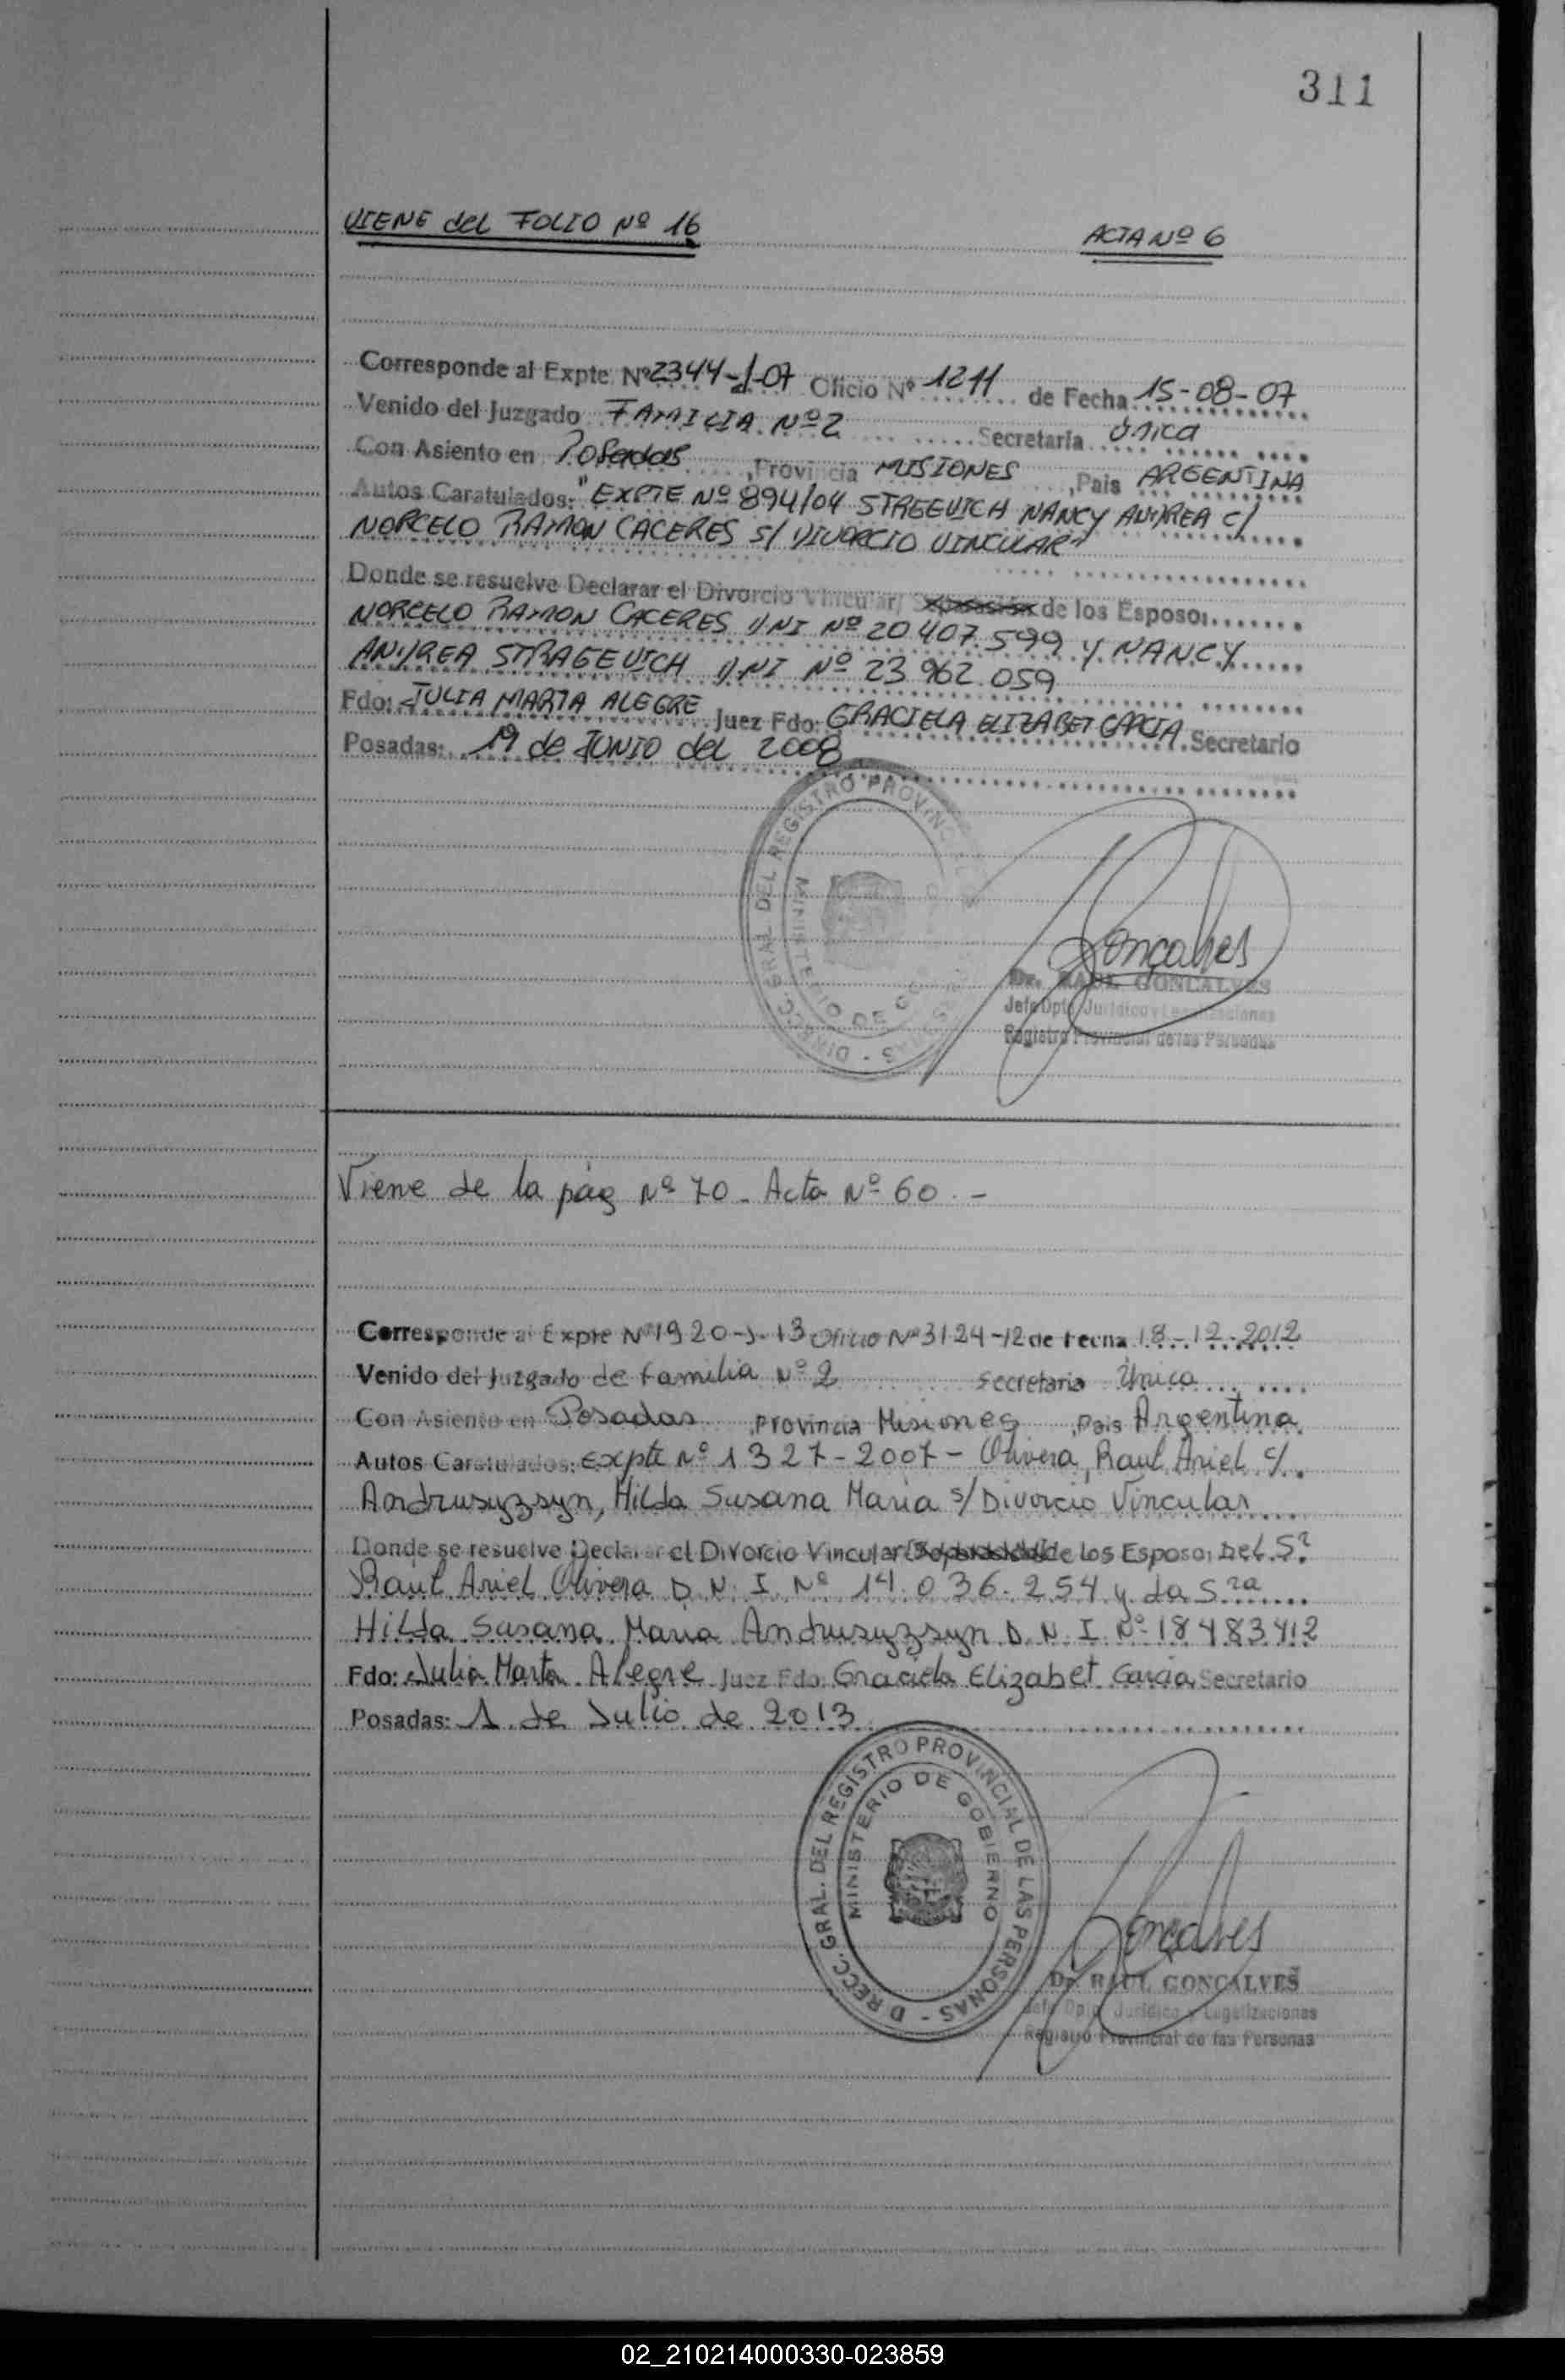 311
VIENE del FOLIO Nº 16
ACTA Nº 6
Corresponde al Expte. Nº 2344-J-07 Oficio Nº 1211 de Fecha 15-08-07
Venido del Juzgado FAMILIA Nº 2 Secretaría Única
Con Asiento en Posadas, Provincia MISIONES, Pais ARGENTINA
Autos Caratulados: "EXPTE Nº 894/04 STREEVICH NANCY ANDREA c/
NORCELO RAMON CACERES S/ DIVORCIO VINCULAR"
Donde se resuelve Declarar el Divorcio Vincular, de los Esposo:
NORCELO RAMON CACERES DNI Nº 20.407.599 Y NANCY
ANDREA STRAGEVICH DNI Nº 23 962.059
Fdo: JULIA MARTA ALEGRE Juez Fdo: GRACIELA ELIZABET GARCIA Secretario
Posadas: 19 de JUNIO del 2008
DIRECC. GRAL. DEL REGISTRO PROVINC
MINISTERIO DE GO
Gonçalves
Dr. RAUL GONCALVES
Jefe Dpto. Jurídico y Legalizaciones
Registro Provincial de las Personas
Viene de la pág Nº 70 - Acta Nº 60.-
Corresponde al Expte Nº 1920-J-13 Oficio Nº 3124-12 de Fecha 18-12-2012
Venido del Juzgado de Familia Nº 2 Secretaria Única
Con Asiento en Posadas, Provincia Misiones, Pais Argentina
Autos Caratulados: Expte Nº 1327-2007 - Olivera, Raul Ariel c/.
Andrusyzsyn, Hilda Susana Maria s/ Divorcio Vincular
Donde se resuelve Declarar el Divorcio Vincular de los Esposo: Del Sr
Raúl Ariel Olivera D.N.I. Nº 14.036.254 y la Sra
Hilda Susana Maria Andrusyzsyn D.N.I. Nº 18483412
Fdo: Julia Marta Alegre Juez Fdo: Graciela Elizabet Garcia Secretario
Posadas: 1 de Julio de 2013
DIRECC. GRAL. DEL REGISTRO PROVINCIAL DE LAS PERSONAS -
MINISTERIO DE GOBIERNO
Gonçalves
Dr. RAUL GONCALVES
Jefe Dpto. Jurídico y Legalizaciones
Registro Provincial de las Personas
02_210214000330-023859